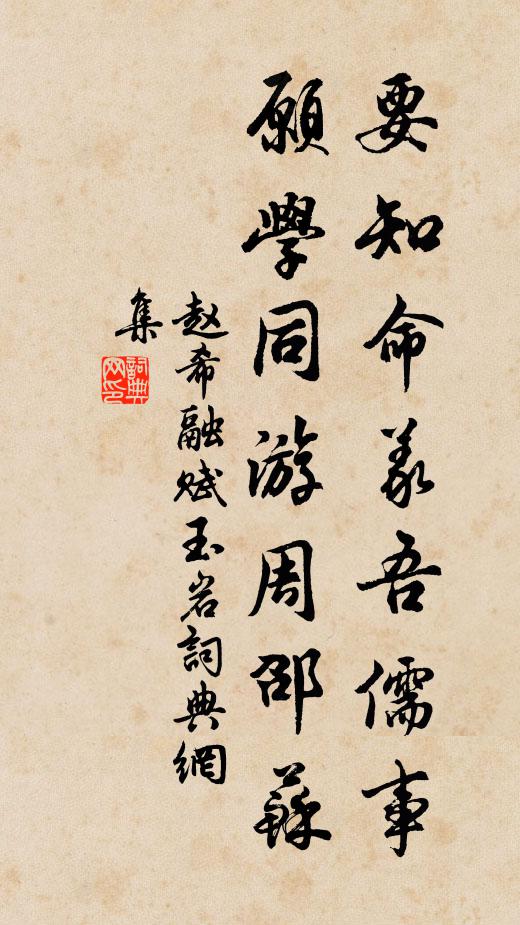 要知命义吾儒事
願學同游周邵蘇
赵希融赋玉岩詞典網
集
詞典網印